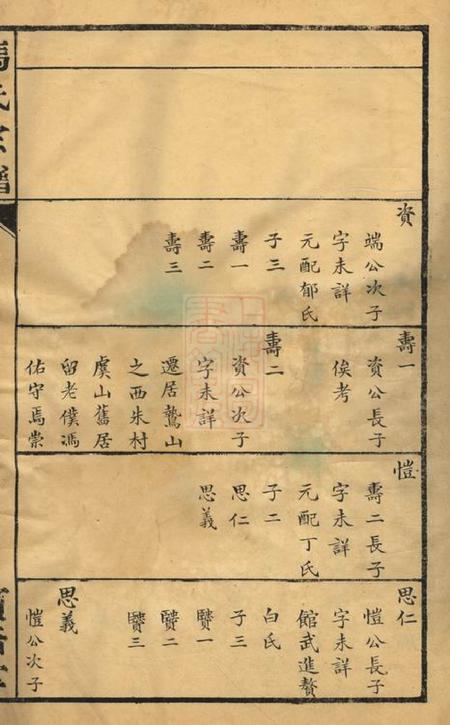 資
端公次子
字未詳
元配郁氏
子三
壽一
壽二
壽三
壽一
資公長子
俟考
壽二
資公次子
字未詳
遷居鷲山
之西朱村
虞山舊居
留老僕馮
佑守焉崇
愷
壽二長子
字未詳
元配丁氏
子二
思仁
思義
思仁
愷公長子
字未詳
館武進贅
白氏
子三
賢一
賢二
賢三
思義
愷公次子
氏宗譜